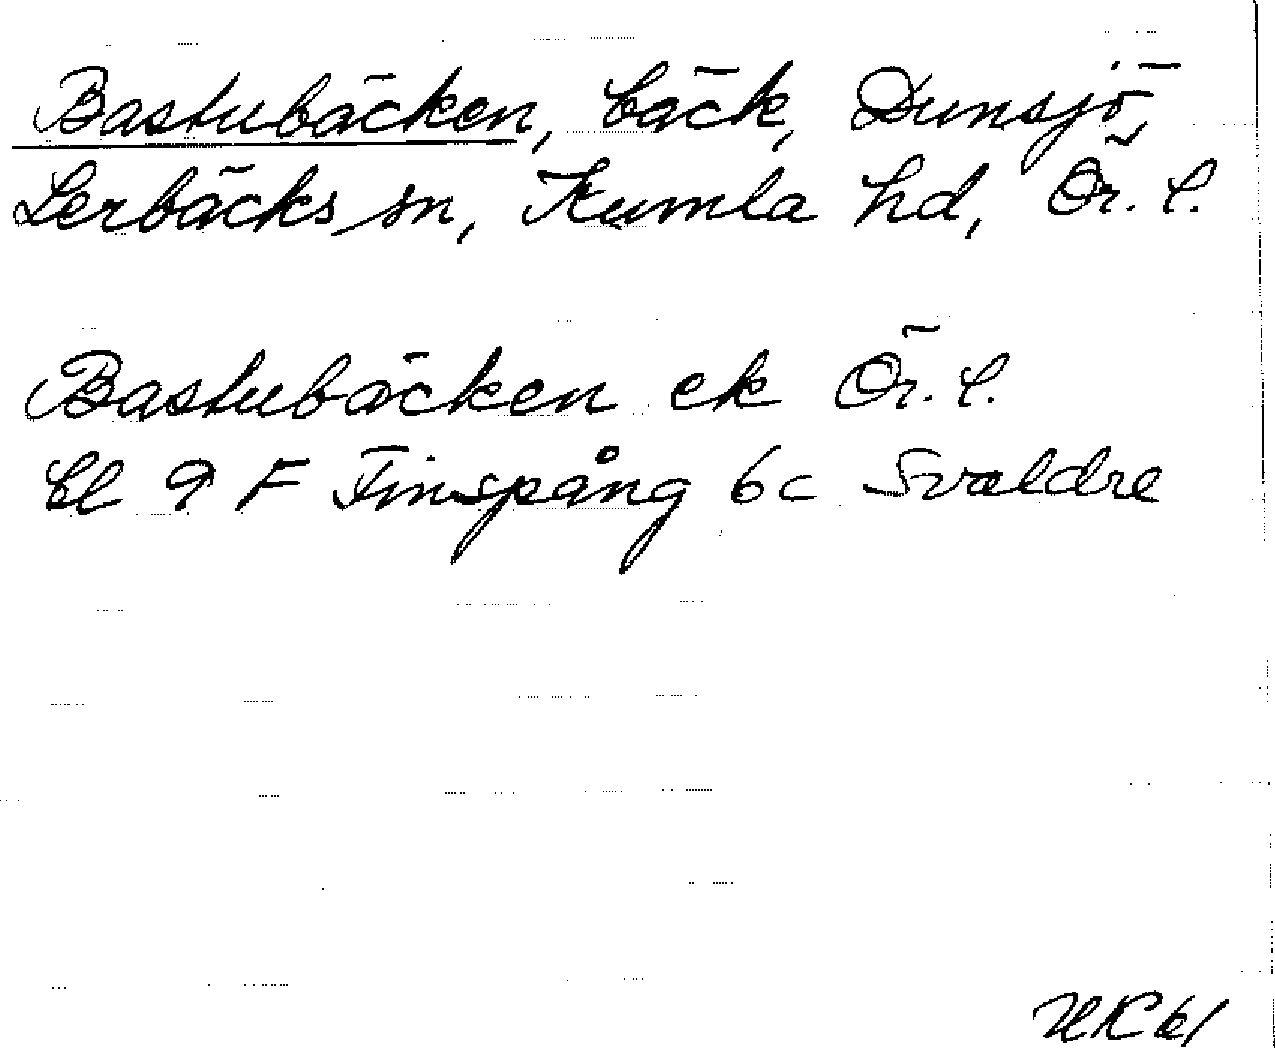 Bastubäcken, bäck, Dunsjö,
Lerbäcks sn, Kumla hd, Ör. l.
Bastubäcken ek Ör. l.
bl 9 F Finspång 6c Svaldre